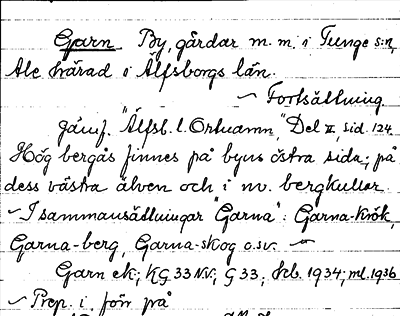 Garn. By, gårdar m.m. i Tunge s:n,
Ale härad i Älfsborgs län.
~ Fortsättning.
Jämf. "Älfsb. l. Ortnamn," Del II, sid. 124.
Hög bergås finnes på byns östra sida; på
dess västra älven och i nv. bergkullar.
~ I sammansättningar "Garna": Garna-krök,
Garna-berg, Garna-skog o.s.v. ~
Garn ek; KG 33 NV; G 33; skb. 1934; ml. 1936
~ Prep. i, förr på